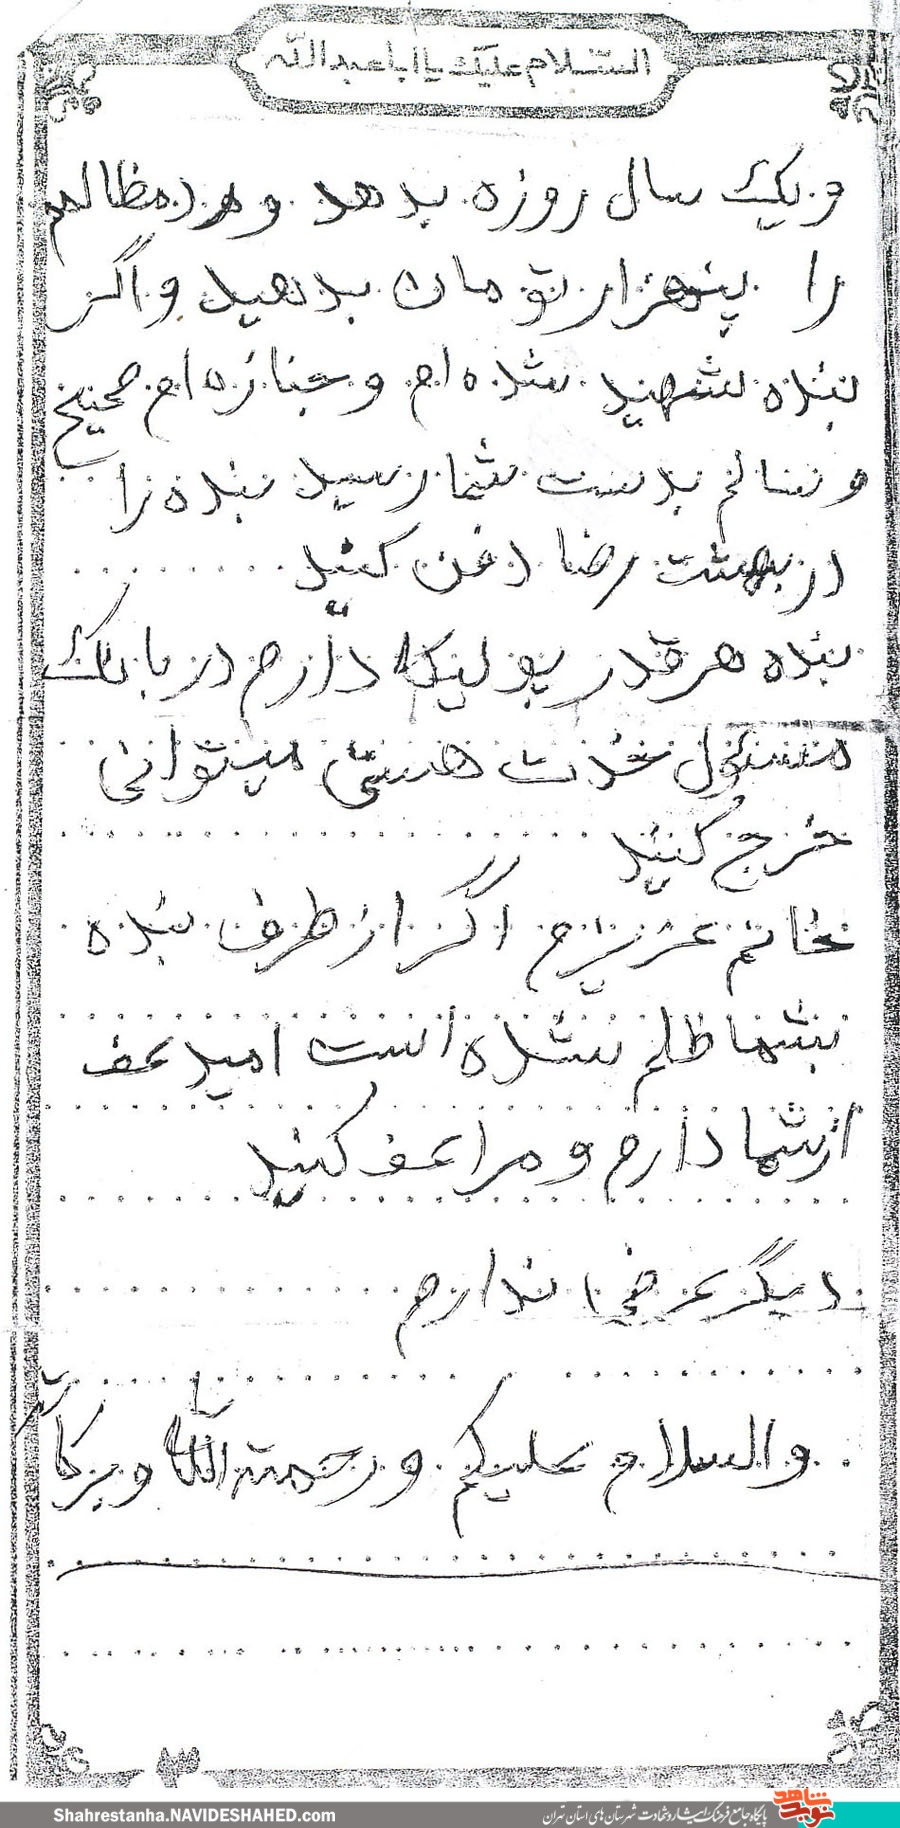 السلام علیک یا اباعبدالله
و یک سال روزه بدهد و رد مظالم
را پنهزار تومان بدهید و اگر
بنده شهید شده ام و جنازه ام صحیح
و سالم بدست شما رسید بنده را
در بهشت رضا دفن کنید
بنده هر قدر پولیکه دارم در بانک
مسئول خودت هستی میتوانی
خرج کنید
خانم عزیزم اگر از طرف بنده
بشما ظلم شده است امید عف
از شما دارم و مرا عف کنید
دیگر عرضی ندارم
والسلام علیکم و رحمته الله و برکاته
۳
Shahrestanha.NAVIDESHAHED.com
پایگاه جامع فرهنگ ایثار و شهادت شهرستان های استان تهران
نوید شاهد